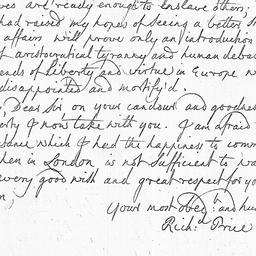 ves are ready enough to enslave others;
had raised my hopes of seeing a better st
affairs will prove only an introduction
of aristocratical tyranny and human debas
ends of Liberty and virtue in Europe w
disappointed and mortify'd.
, Dear Sir, on your candour and goodness
erty I now take with you. I am afraid
sone which I had the happiness to comm
hen in London is not sufficient to wa
every good wish and great respect for yo
n,
Your most obed.t and hu
Rich.d Price